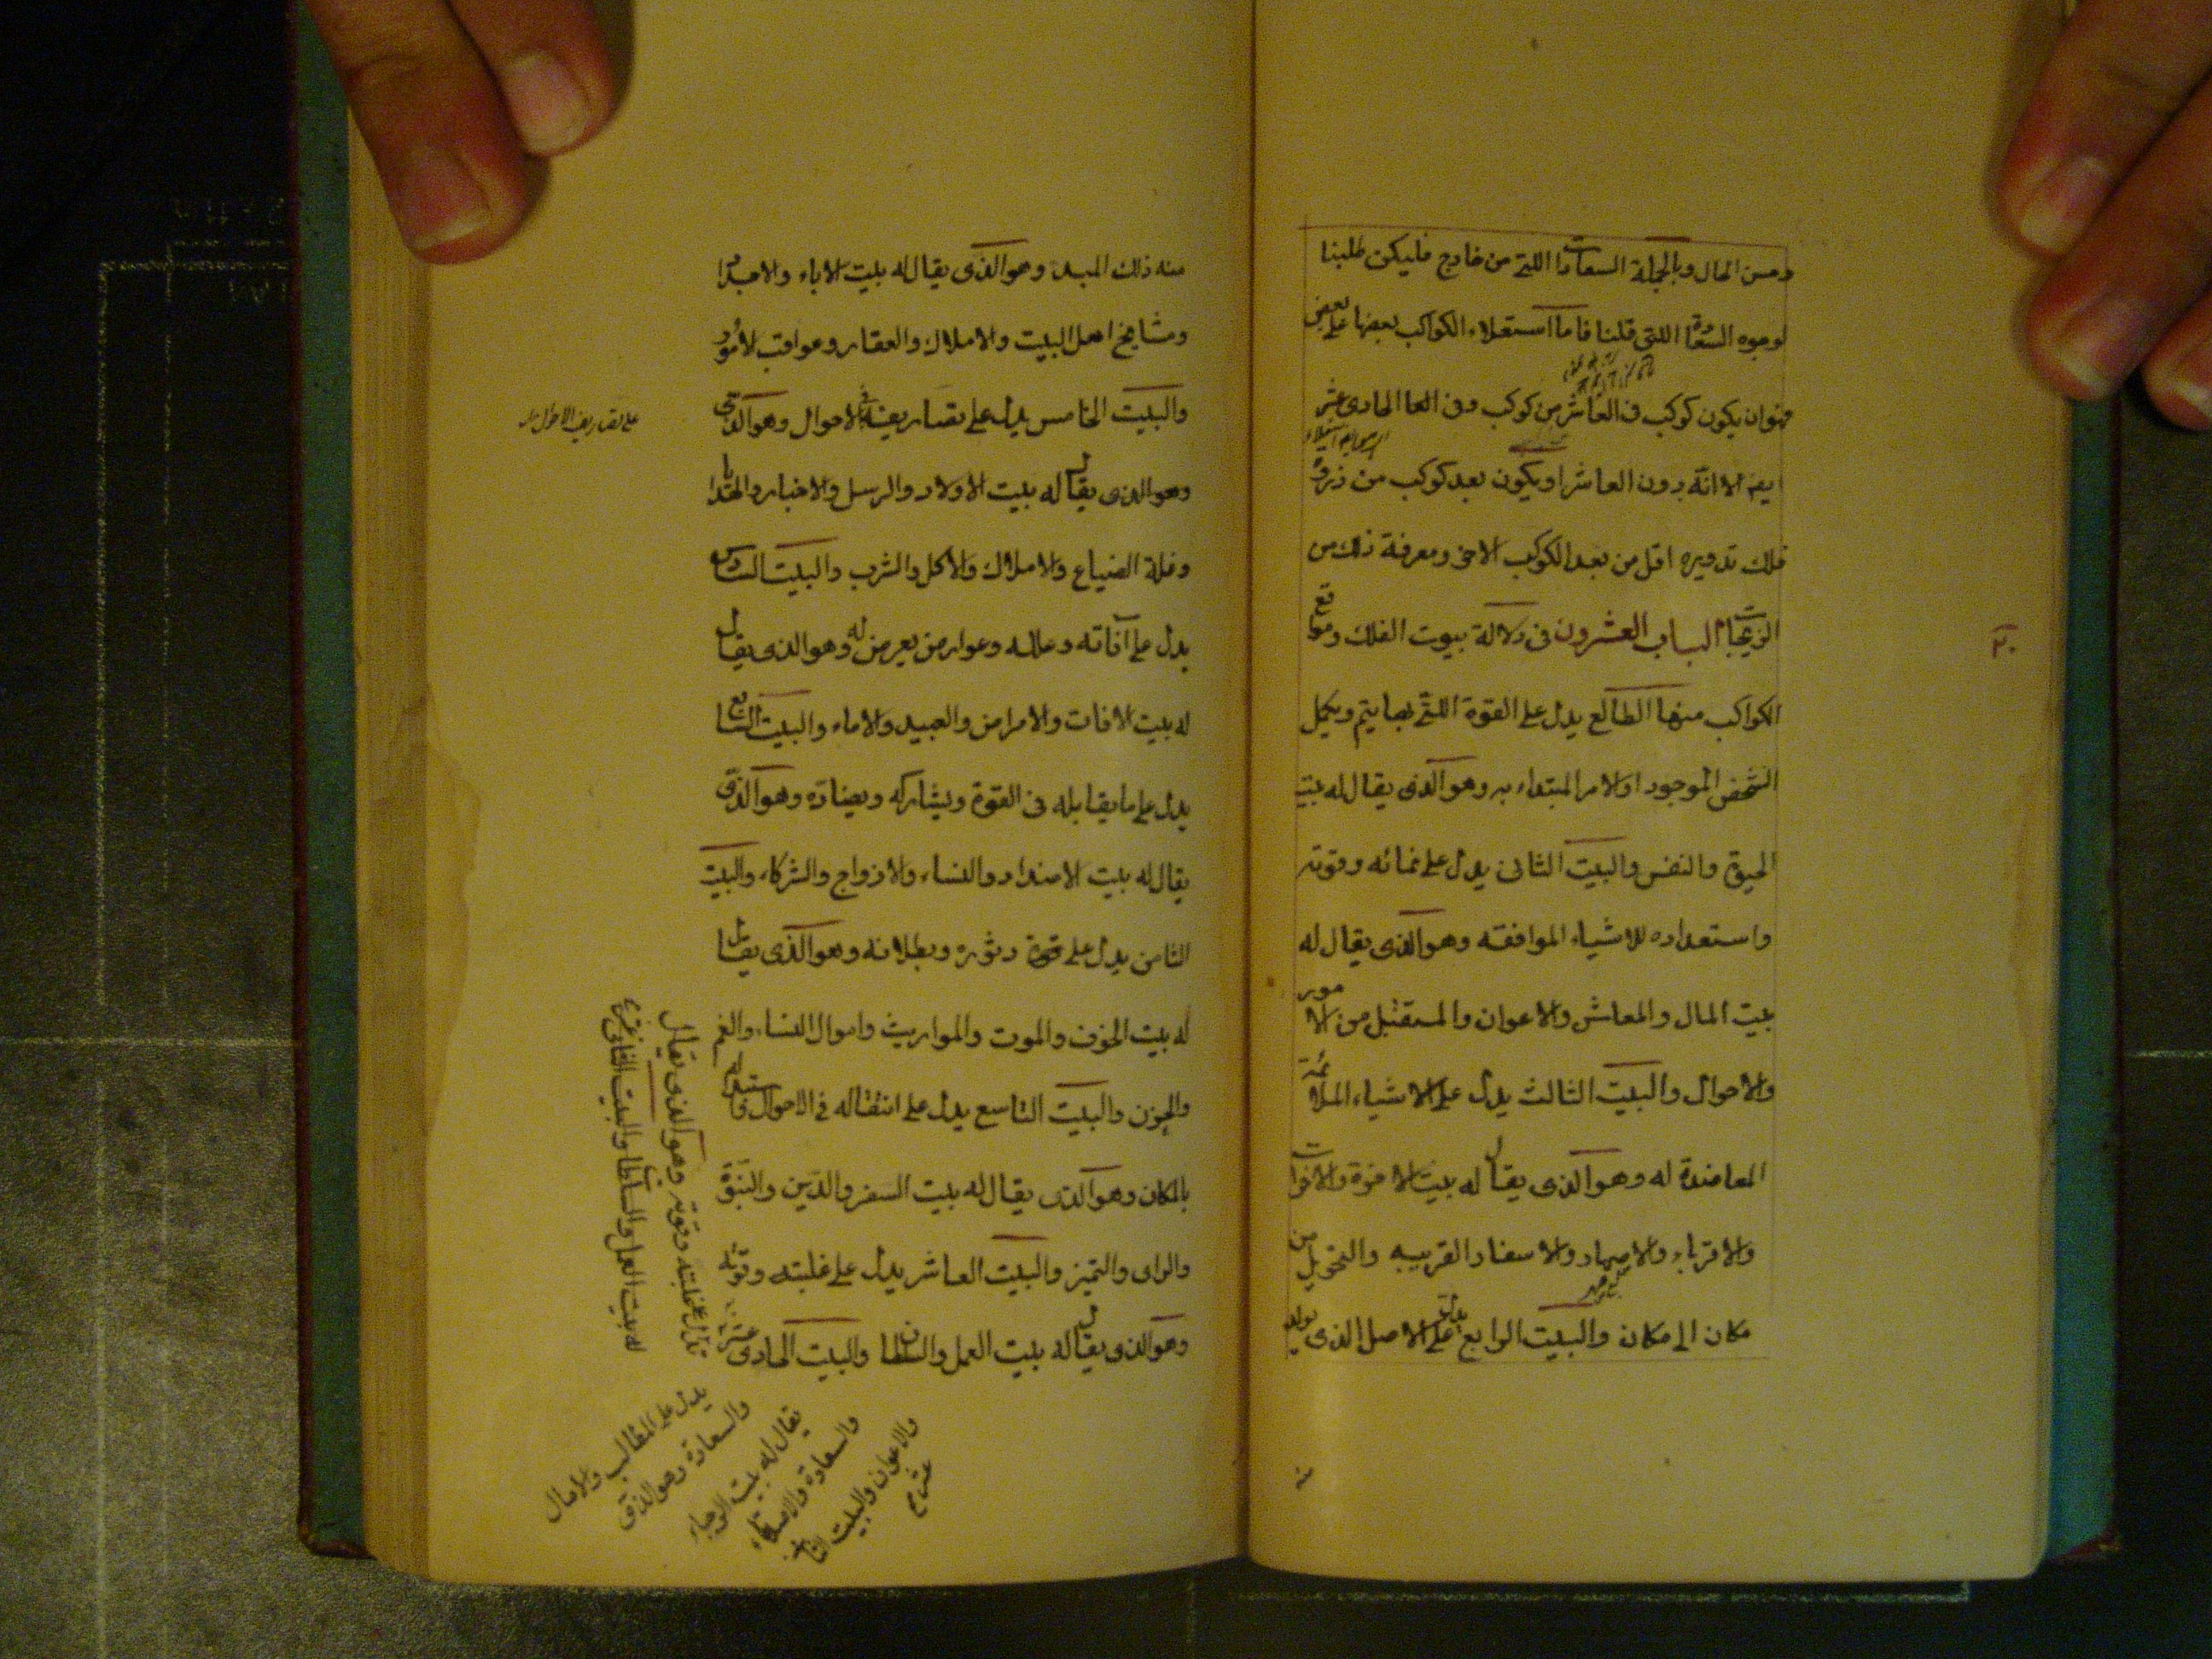 وحسن الحال وبالجملة السعادات اللتى من خارج فليكن طلبنا
لوجوه السعادة اللتى قلنا فاما استعلاء الكواكب بعضها على بعض
فهو ان يكون كوكب فى العاشر من كوكب وفى الحادى عشر
ايضا الا انه دون العاشر او يكون بعد كوكب من ذروة
فلك تدويره اقل من بعد الكوكب الاخر ومعرفة ذلك من
الزيجات الباب العشرون فى دلالة بيوت الفلك ومواقع
٢٠
الكواكب منها الطالع يدل على القوة اللتى بها يتم ويكمل
الشخص الموجود او الامر المبتداء به وهو الذى يقال له بيت
الحيوة والنفس والبيت الثانى يدل على نمائه وقوته
واستعداده للاشياء الموافقه وهو الذى يقال له
بيت المال والمعاش والاعوان والمستقبل من الامور
والاحوال والبيت الثالث يدل على الاشياء الملائمة
المعاضدة له وهو الذى يقال له بيت الاخوة والاخوات
والاقرباء والاصهار والاسفار القريبه والتحويل من
مكان الى مكان والبيت الرابع يدل على الاصل الذى تولد
منه
منه ذلك المبدء وهو الذى يقال له بيت الاباء والاجداد
ومشايخ اهل البيت والاملاك والعقار وعواقب الامور
والبيت الخامس يدل على تصاريفه فى الاحوال وهو الذى
على تصاريف الاحوال
وهو الذى يقال له بيت الاولاد والرسل والاخبار والهدايا
وغلة الضياع والاملاك والاكل والشرب والبيت السادس
يدل على آفاته وعلله وعوارض يعرض له وهو الذى يقال
له بيت الافات والامراض والعبيد والاماء والبيت السابع
يدل على ما يقابله فى القوة ويشاركه ويضاده وهو الذى
يقال له بيت الاضداد والنساء والازواج والشركاء والبيت
الثامن يدل على دثوره وبطلانه وهو الذى يقال
له بيت الخوف والموت والمواريث واموال النساء والغم
والحزن والبيت التاسع يدل على انتقاله فى الاحوال
بالمكان وهو الذى يقال له بيت السفر والدين والنبوة
والراى والتميز والبيت العاشر يدل على غلبته وقوته
وهو الذى يقال له بيت العمل والسلطان والبيت الحادى عشر
يدل على غلبته وقوته وهو الذى يقال
له بيت العمل والسلطان والبيت
يدل على المطالب والامال
والسعادة وهو الذى
يقال له بيت الرجاء
والسعادة والاصدقاء
والاعوان والبيت الثانى
عشر